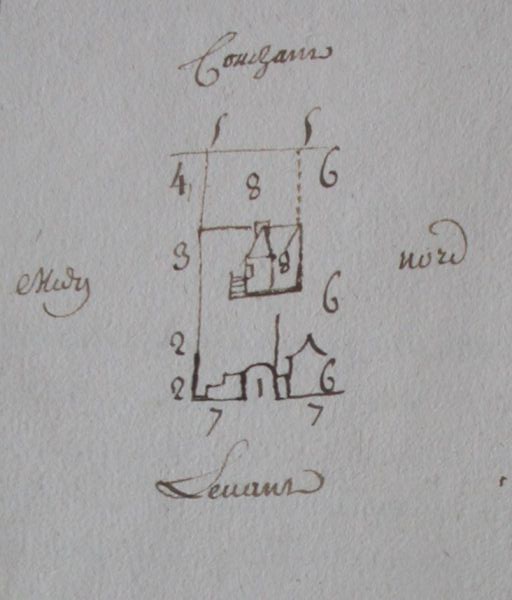 Couchant
5 5
4 8 6
3 8
Midy nord
6
2
2 1 6
7 7
Levant